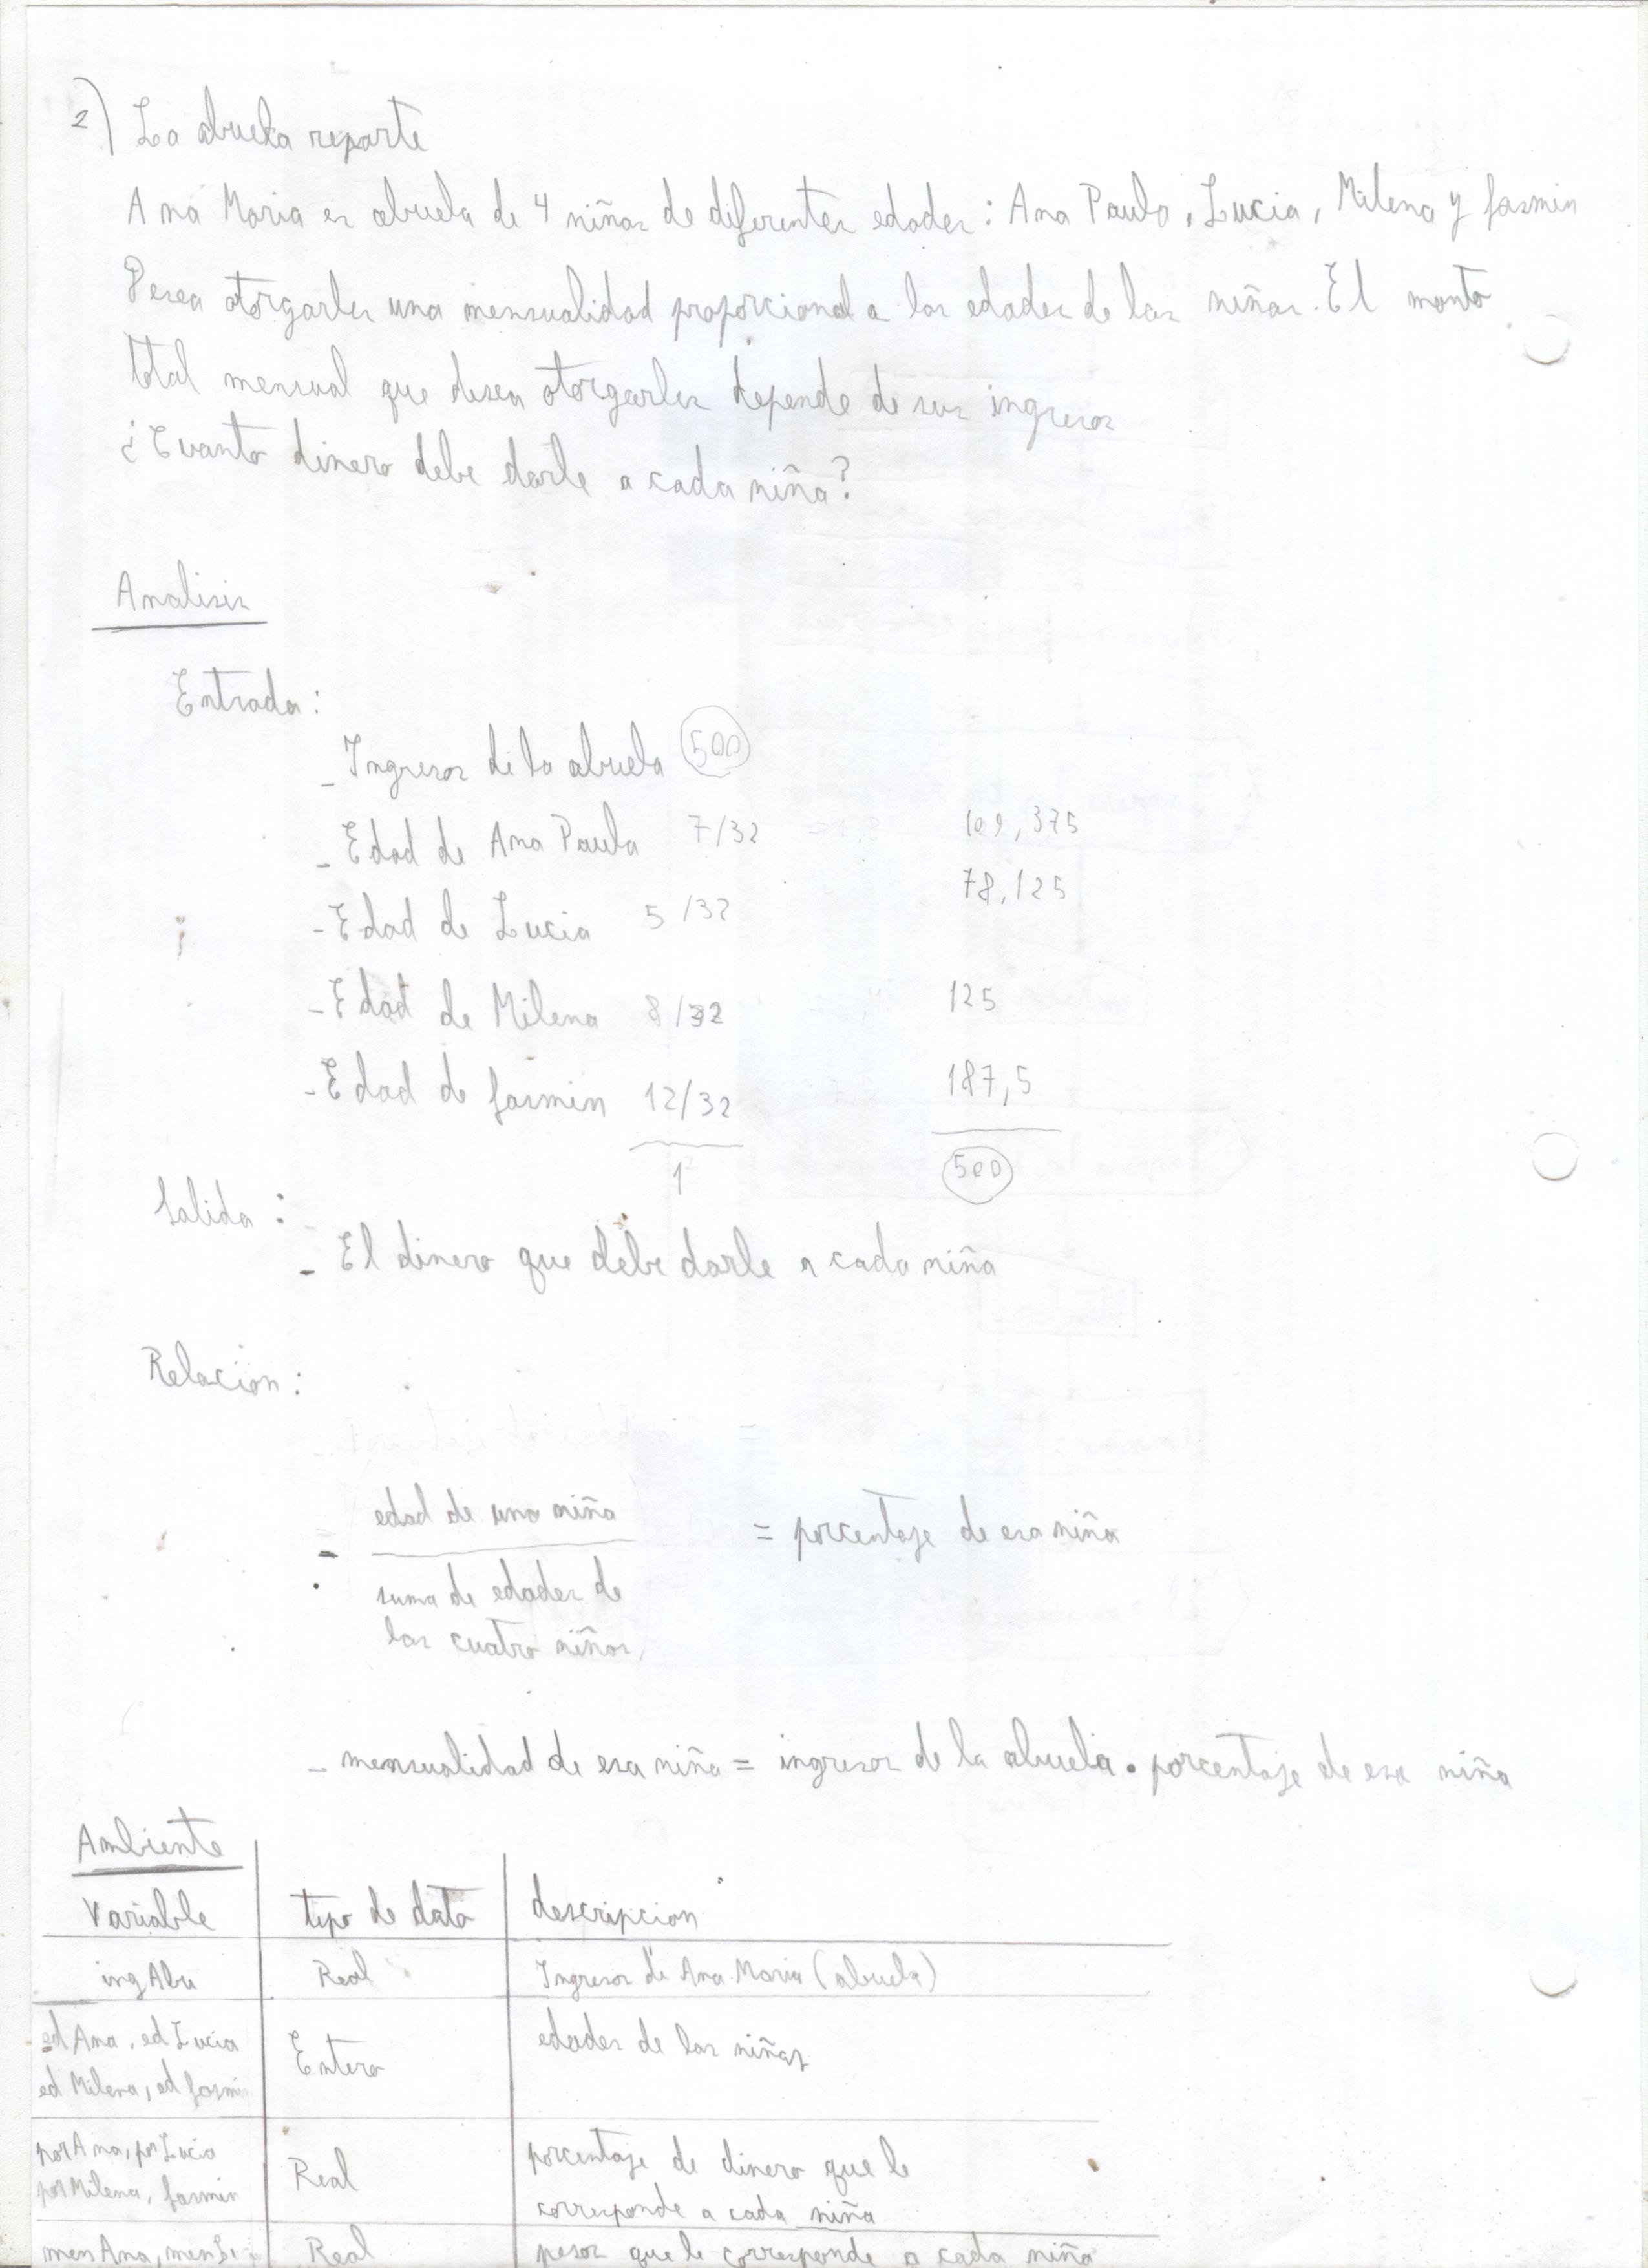 2) La abuela reparte
Ana Maria es abuela de 4 niñas de diferentes edades: Ana Paula, Lucia, Milena y Jasmin
Desea otorgarles una mensualidad proporcional a las edades de las niñas. El monto
total mensual que desea otorgarles depende de sus ingresos
¿Cuanto dinero debe darle a cada niña?
Analisis
Entrada:
- Ingresos de la abuela 500
- Edad de Ana Paula 7/32 109,375
- Edad de Lucia 5/32 78,125
- Edad de Milena 8/32 125
- Edad de Jasmin 12/32 187,5
1 500
Salida:
- El dinero que debe darle a cada niña
Relacion:
- edad de una niña
= porcentaje de esa niña
suma de edades de
las cuatro niñas
- mensualidad de esa niña = ingresos de la abuela . porcentaje de esa niña
Ambiente
Variable tipo de dato descripcion
ingAbu Real Ingresos de Ana Maria (abuela)
edAna, edLucia
edMilena, edJasmin
Entero edades de las niñas
porAna, porLucia
porMilena, Jasmin
Real porcentaje de dinero que le
corresponde a cada niña
menAna, Real pesos que le corresponde a cada niña